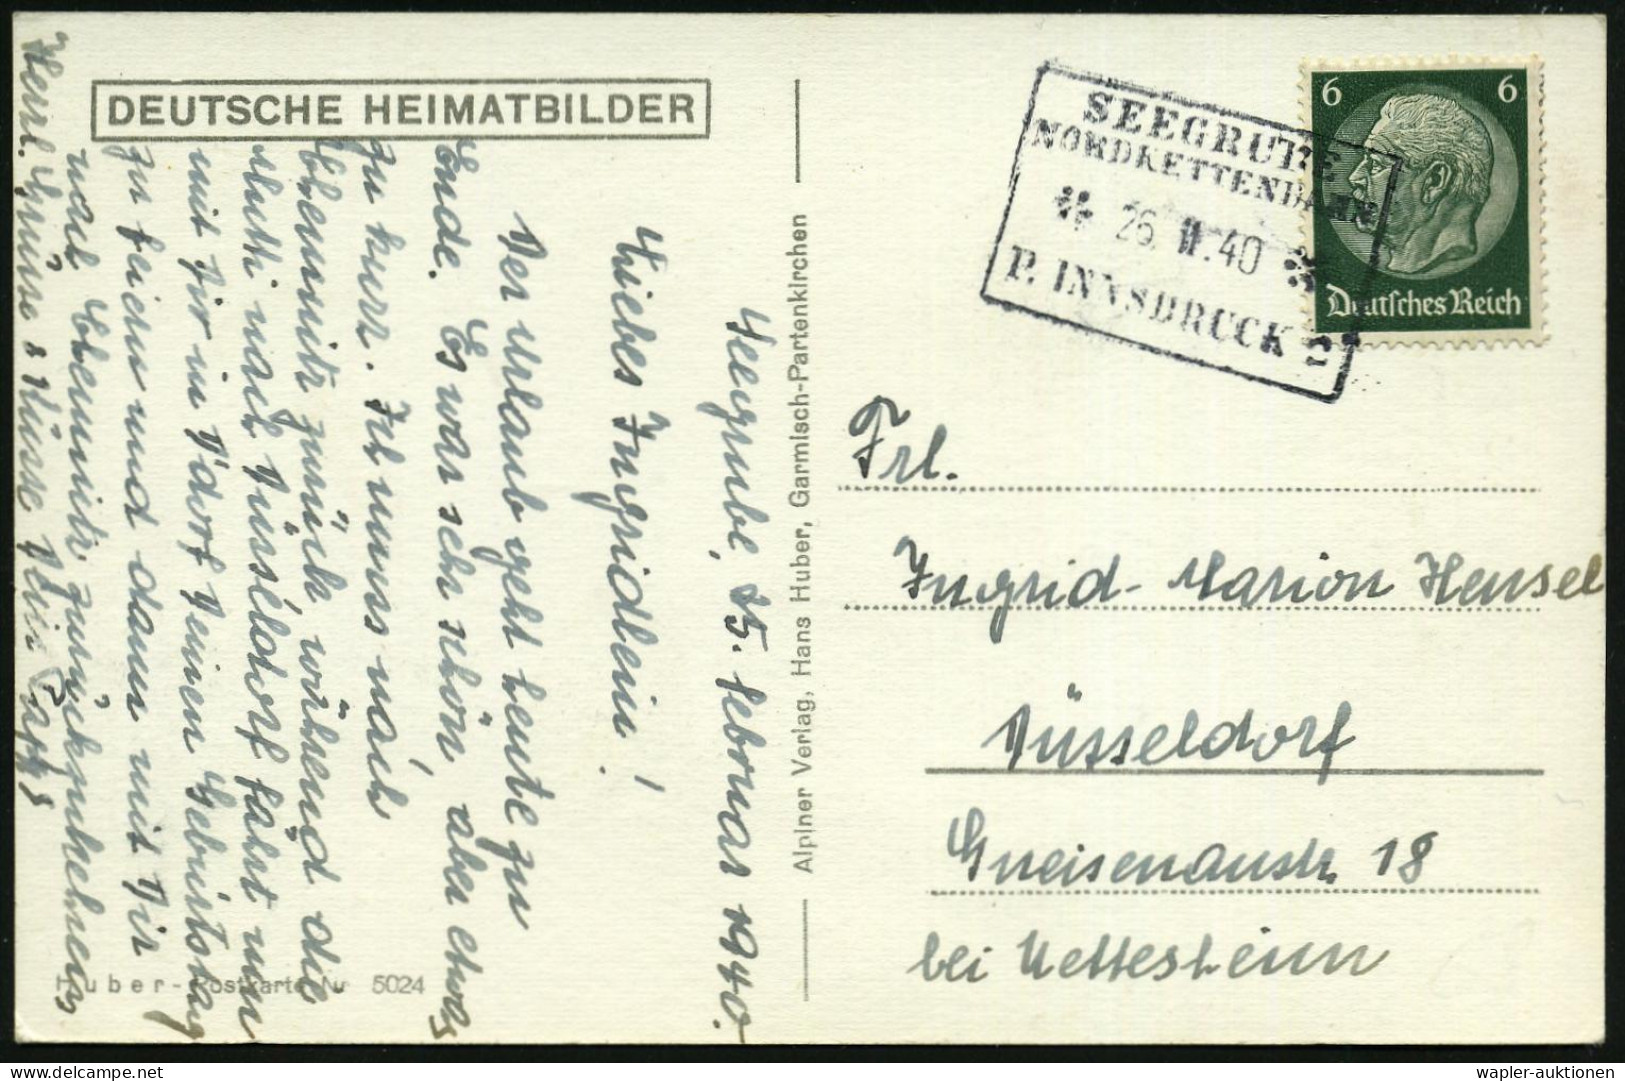 DEUTSCHE HEIMATBILDER
Seegrube, 25. Februar 1940.
Liebes Ingridlein!
Der Urlaub geht heute zu
Ende. Es war sehr schön, aber etwas
zu kurz. Ich muss nach
Chemnitz zurück, während die
Mutti nach Düsseldorf fährt um
mit Dir in D'dorf Deinen Geburtstag
zu feiern und dann mit Dir
nach Chemnitz zurückzukehren
Herzl. Grüsse & Küsse Dein
Huber-Postkarte Nr 5024
Alpiner Verlag, Hans Huber, Garmisch-Partenkirchen
SEEGRUBE
NORDKETTENBAHN
26. II. 40
P. INNSBRUCK 2
6 6
Deutsches Reich
Frl.
Ingrid-Marion Hensel
Düsseldorf
Gneisenaustr. 18
bei
wapler-auktionen